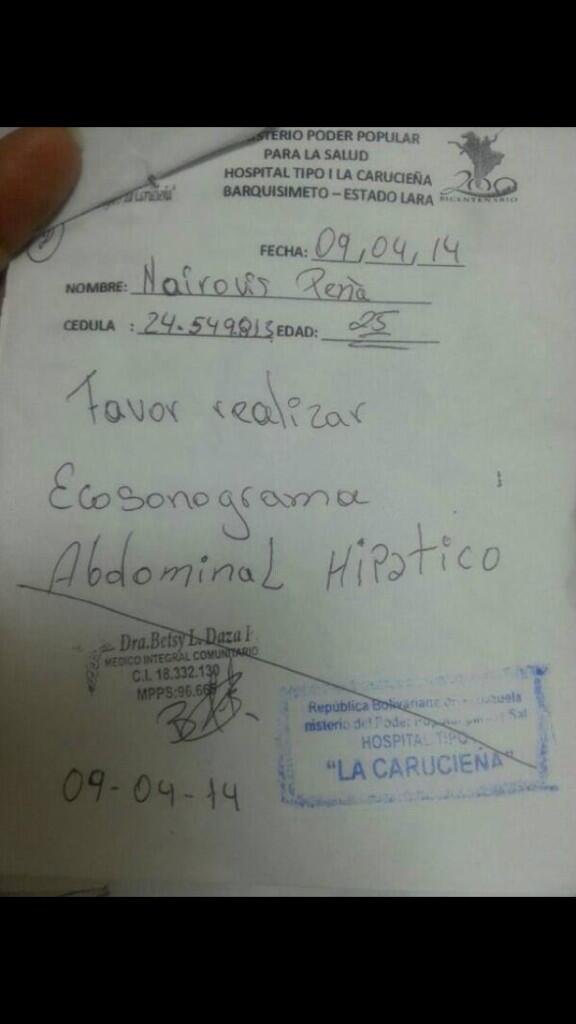 STERIO PODER POPULAR
PARA LA SALUD
HOSPITAL TIPO I LA CARUCIEÑA
BARQUISIMETO – ESTADO LARA
200
BICENTENARIO
FECHA: 09,04,14
NOMBRE: Nairovis Peña
CEDULA : 24.549.813 EDAD: 25
Favor realizar
Ecosonograma
Abdominal Hipatico
Dra. Betsy L. Daza I
MEDICO INTEGRAL COMUNITARIO
C.I. 18.332.130
MPPS:96.66
República Bolivariana
nisterio del Poder
HOSPITAL TIPO
"LA CARUCIEÑA"
09-04-14